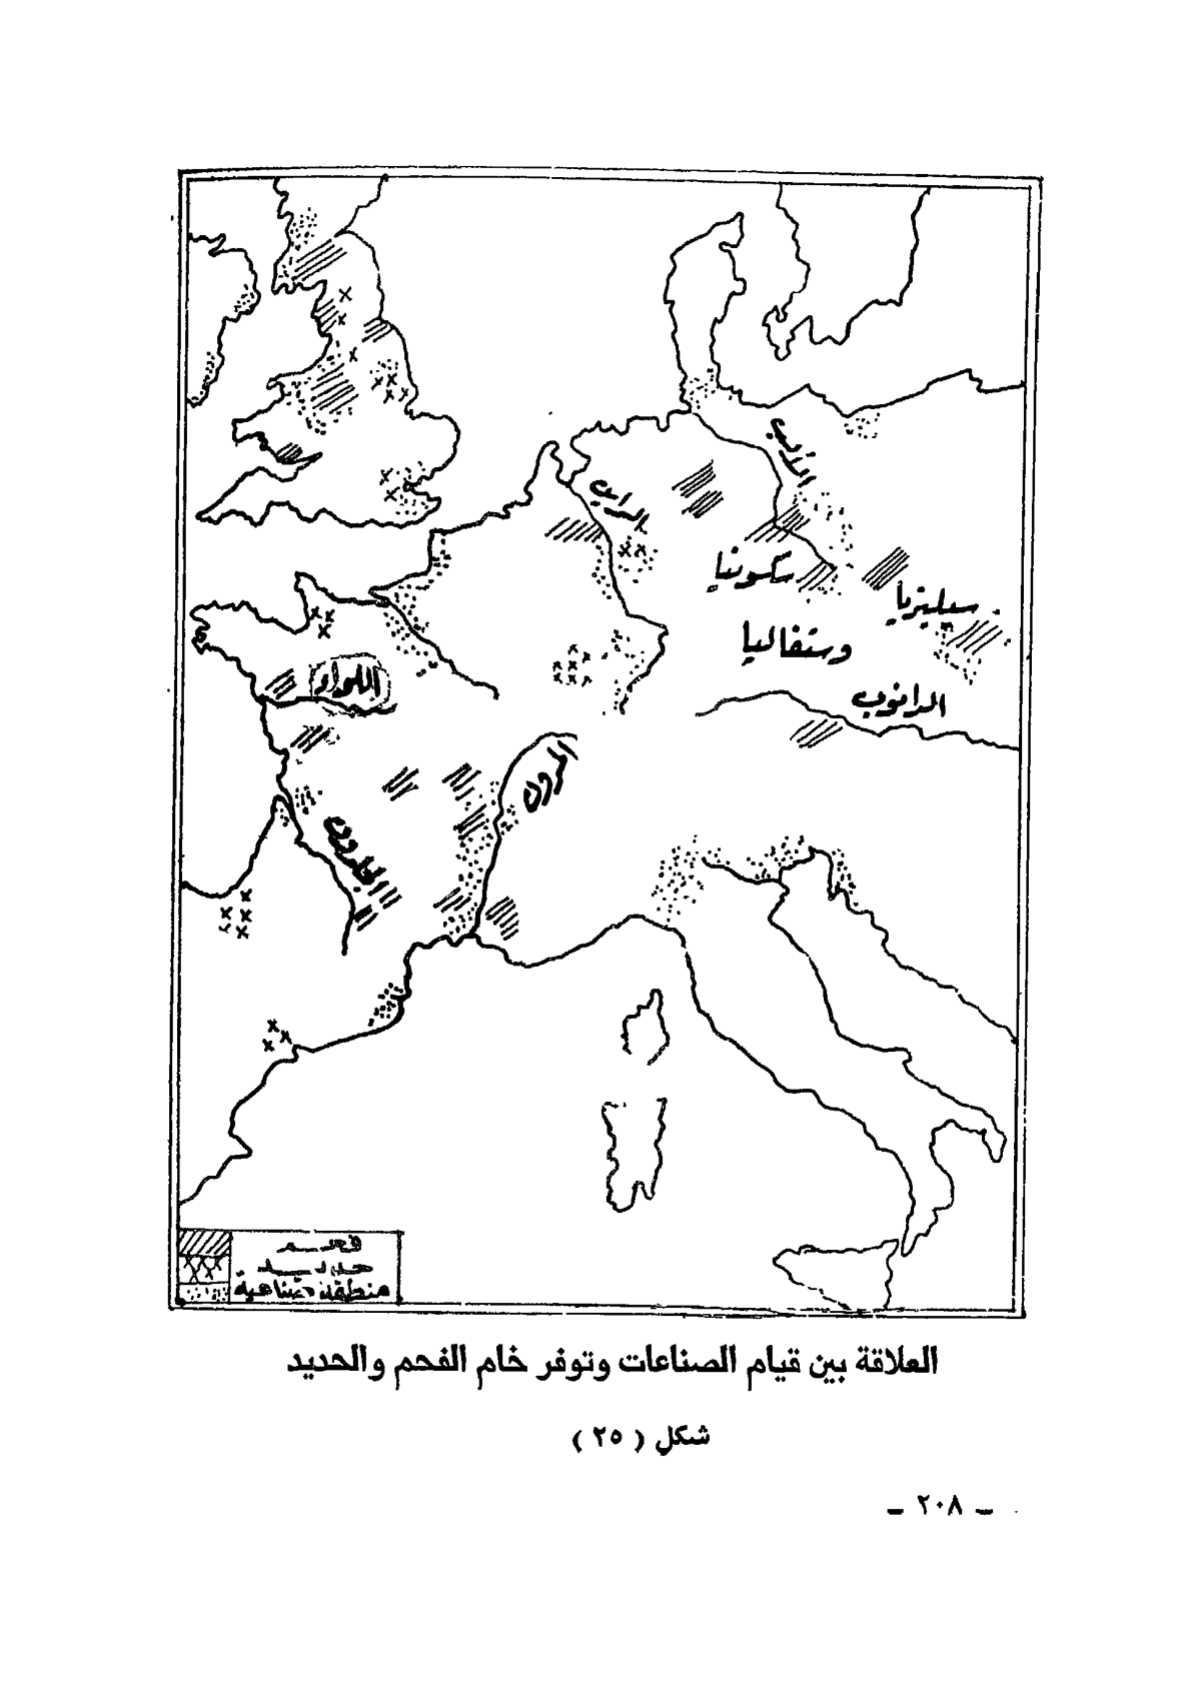 الالب
الراين
سكونيا
سيليزيا
وستفاليا
الدانوب
اللوار
الرون
الجارون
فحم
حديد
منطقة صناعية
العلاقة بين قيام الصناعات وتوفر خام الفحم والحديد
شكل ( ٢٥ )
ـ ٢٠٨ ـ